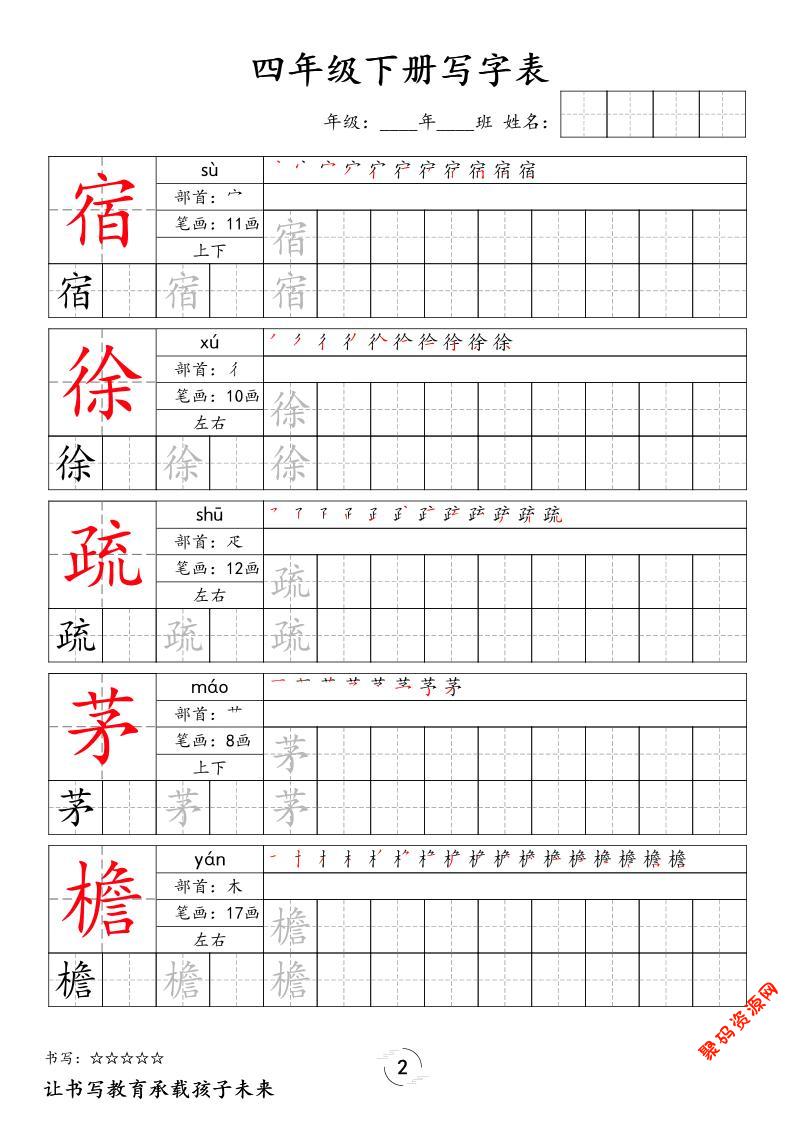 四年级下册写字表
年级：____年____班 姓名：
宿
sù
部首：宀
笔画：11画
上下
宿
宿 宿 宿
徐
xú
部首：彳
笔画：10画
左右
徐
徐 徐 徐
疏
shū
部首：疋
笔画：12画
左右
疏
疏 疏 疏
茅
máo
部首：艹
笔画：8画
上下
茅
茅 茅 茅
檐
yán
部首：木
笔画：17画
左右
檐
檐 檐 檐
书写：☆☆☆☆☆
让书写教育承载孩子未来
2
聚码资源网